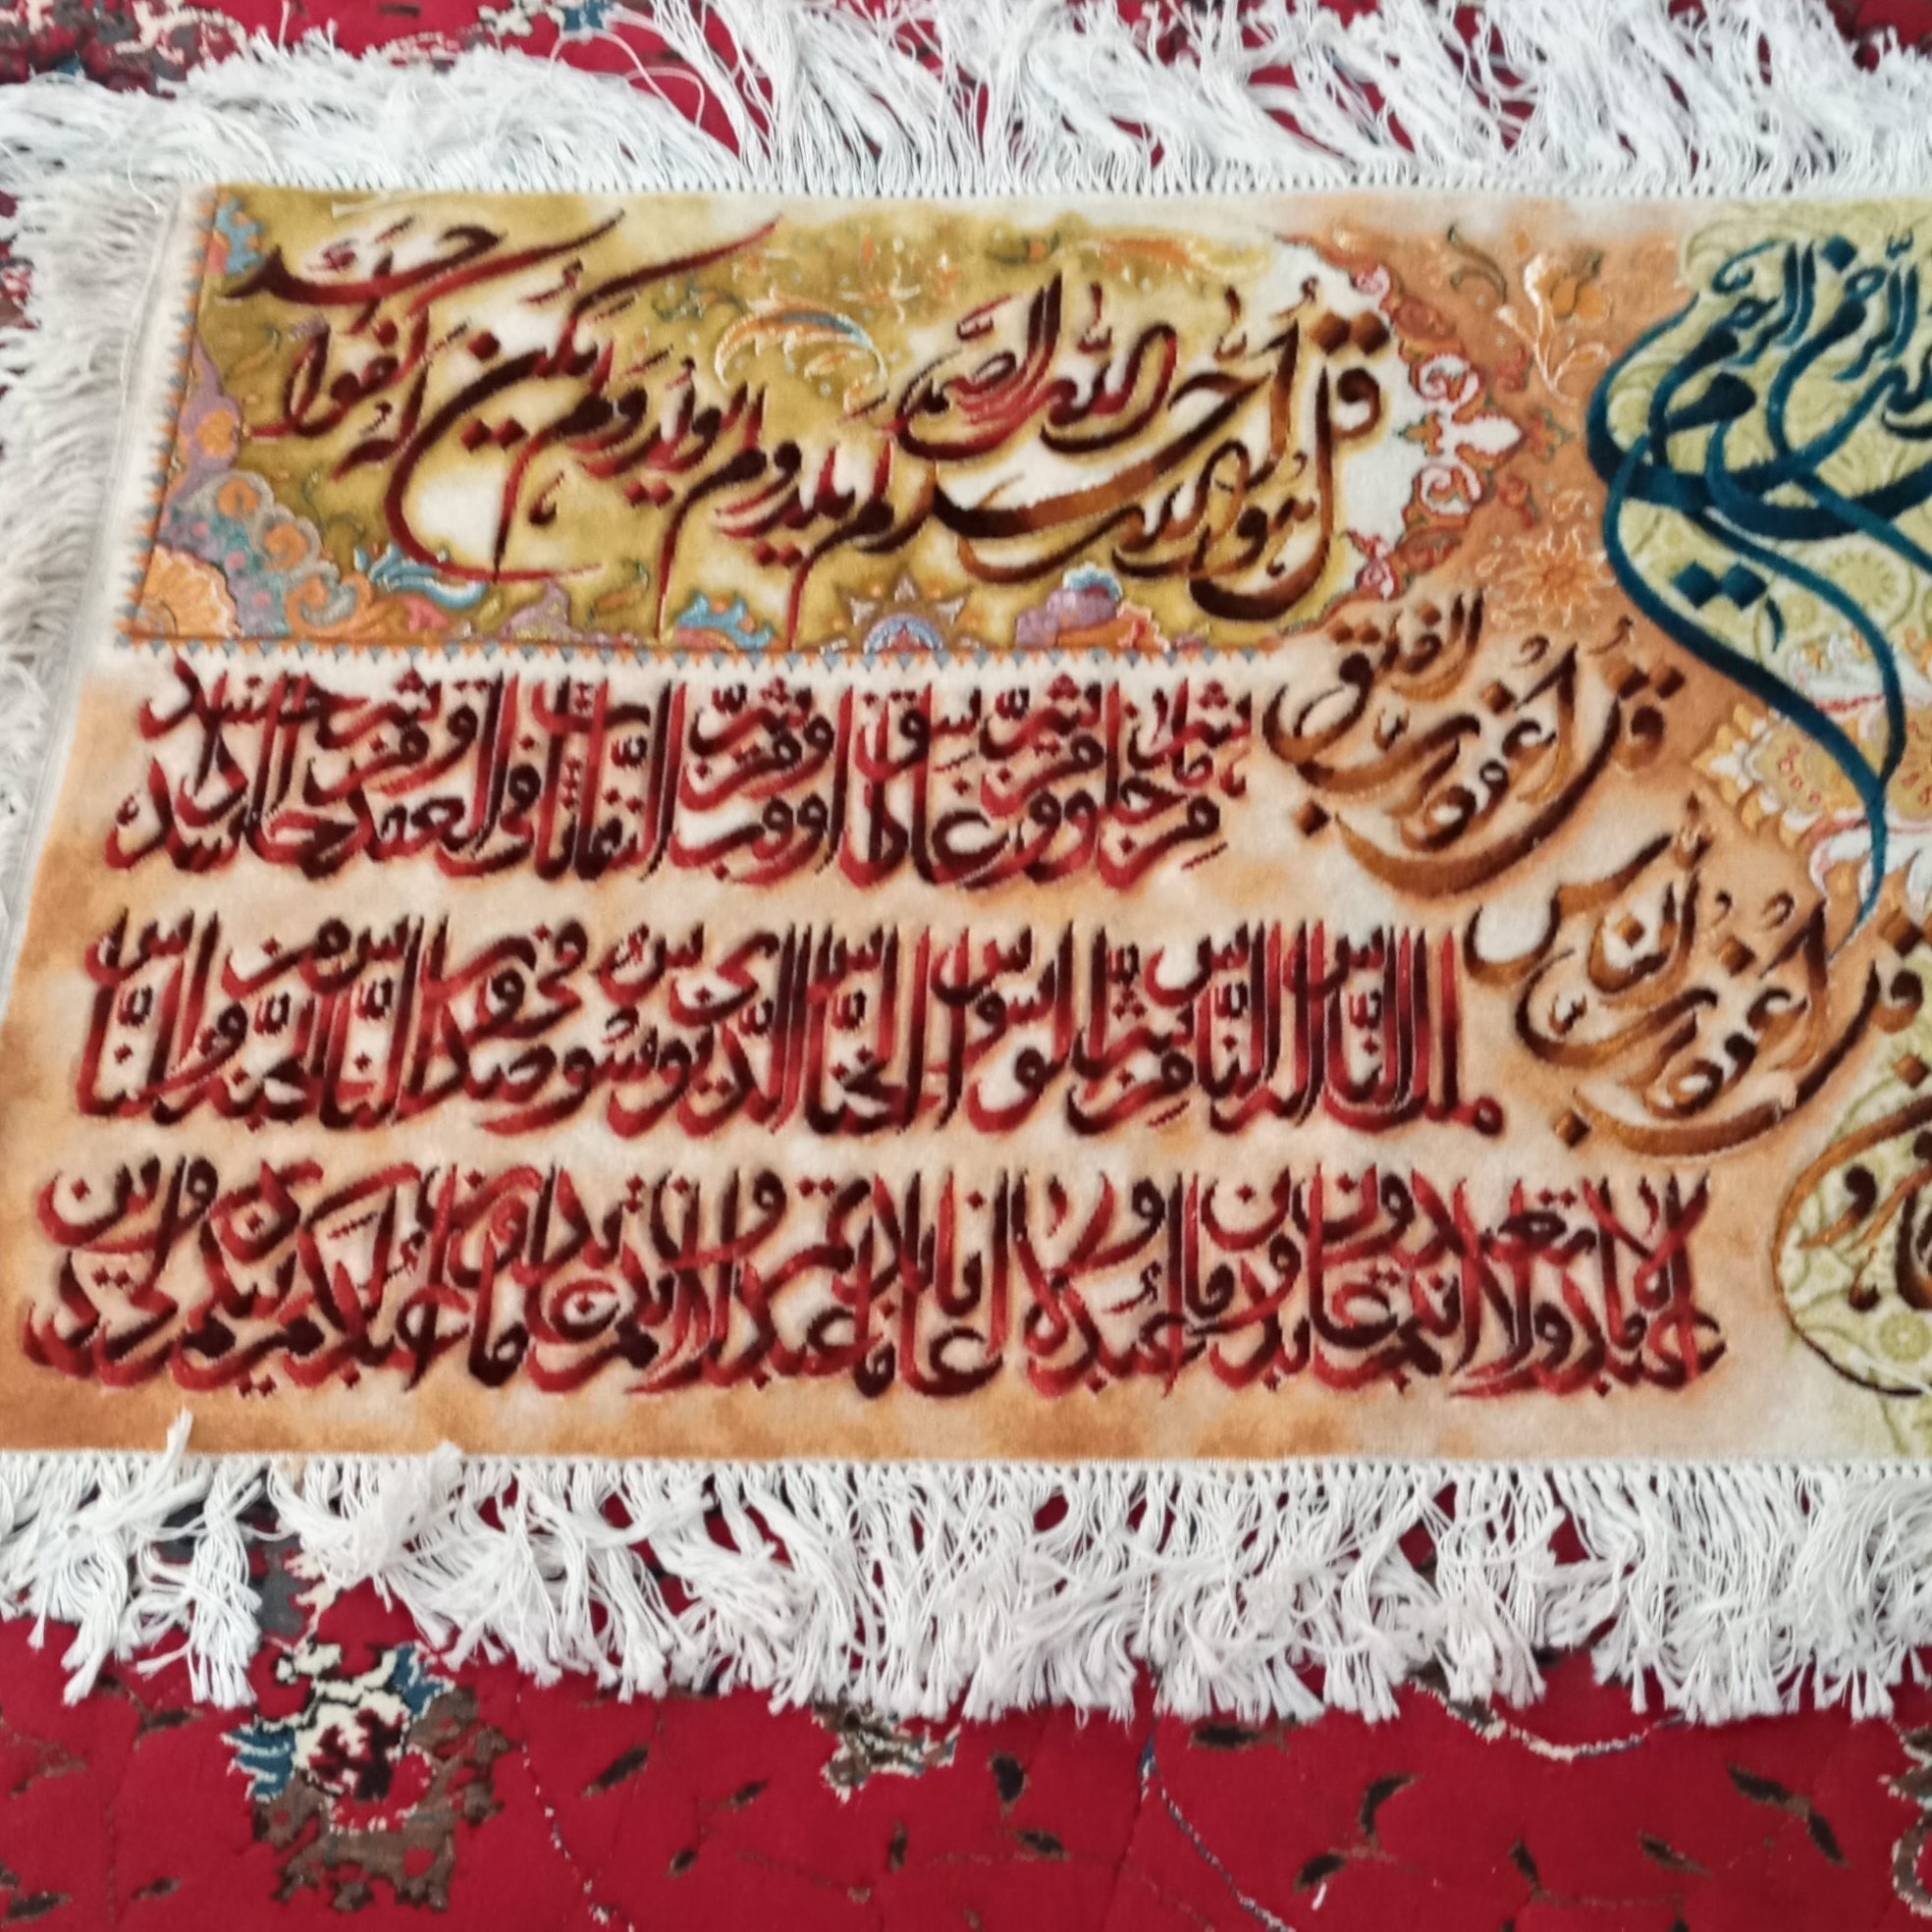 بسم الله الرحمن الرحیم
قل هو الله احد الله الصمد لم یلد ولم یولد ولم یکن له کفوا احد
قل اعوذ برب الفلق
من شر ما خلق ومن شر غاسق اذا وقب ومن شر النفاثات فی العقد ومن شر حاسد اذا حسد
قل اعوذ برب الناس
ملک الناس اله الناس من شر الوسواس الخناس الذی یوسوس فی صدور الناس من الجنة والناس
لا اعبد ما تعبدون ولا انتم عابدون ما اعبد ولا انا عابد ما عبدتم ولا انتم عابدون ما اعبد لکم دینکم ولی دین